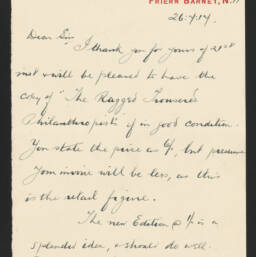 FRIERN BARNET, N.11
26.4.14.
Dear Sir
I thank you for yours of 21st
inst & will be pleased to have the
copy of "The Ragged Trousered
Philanthropists if in good condition.
You state the price as 6/, but presume
Your invoice will be less, as this
is the retail figure.
The new Edition @ 1/- is a
splendid idea, & should do well.